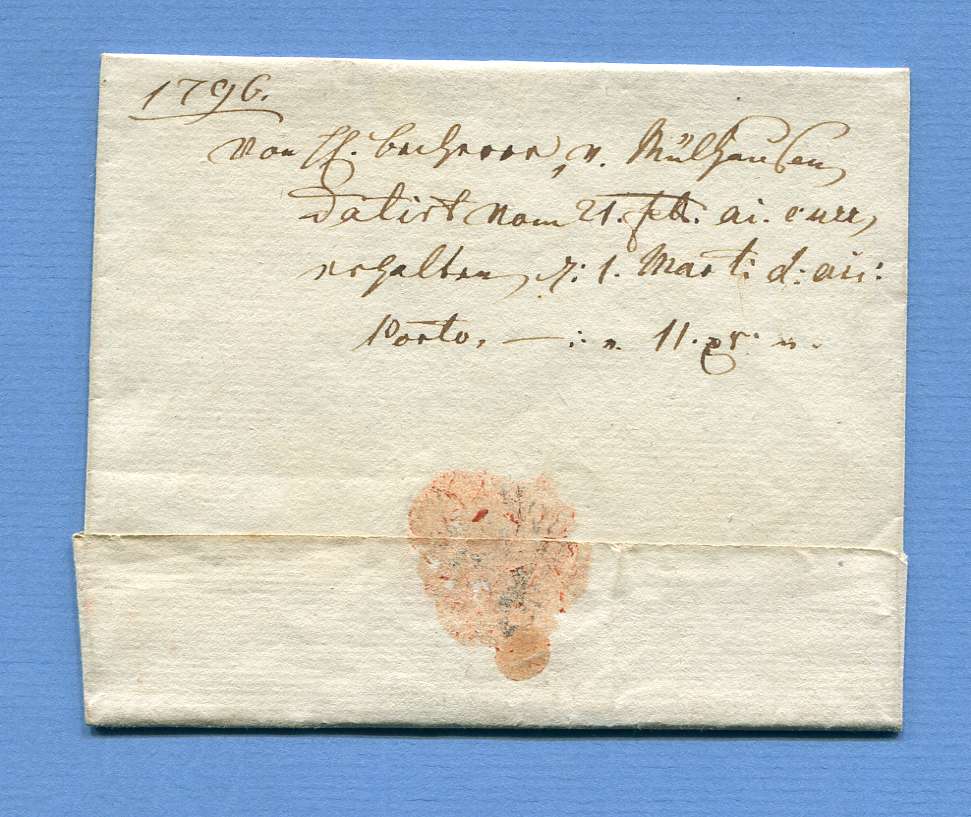 1796.
von H. v. Mülhausen,
Datirt vom 21. feb. ai. curr,
erhalten, 1. Marti d: ai:
Porto, — : 11. xr: